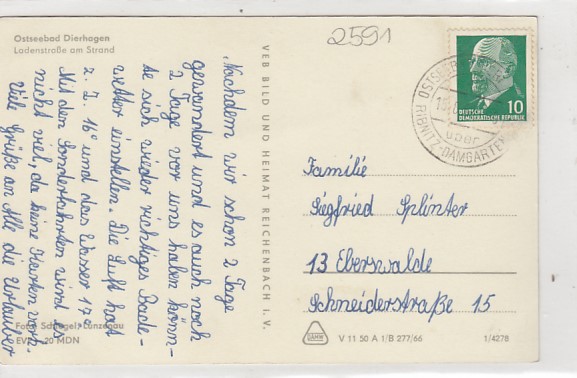 Ostseebad Dierhagen
Ladenstraße am Strand
2591
Nachdem wir schon 2 Tage
gewandert und es auch noch
2 Tage vor uns haben könn-
te sich wieder richtiges Bade-
wetter einstellen. Die Luft hat
z. Z. 16° und das Wasser 17°
Mit den Sonderfahrten wird es
nicht viel, da keine Karten vorh.
Viele Grüße an Alle die Urlauber
Foto: Schlegel, Lunzenau
EVP -,20 MDN
VEB BILD UND HEIMAT REICHENBACH I. V.
DEUTSCHE
DEMOKRATISCHE REPUBLIK
10
über
RIBNITZ-DAMGARTEN
Familie
Siegfried Splinter
13 Eberswalde
Schneiderstraße 15
V 11 50 A 1/B 277/66
1/4278